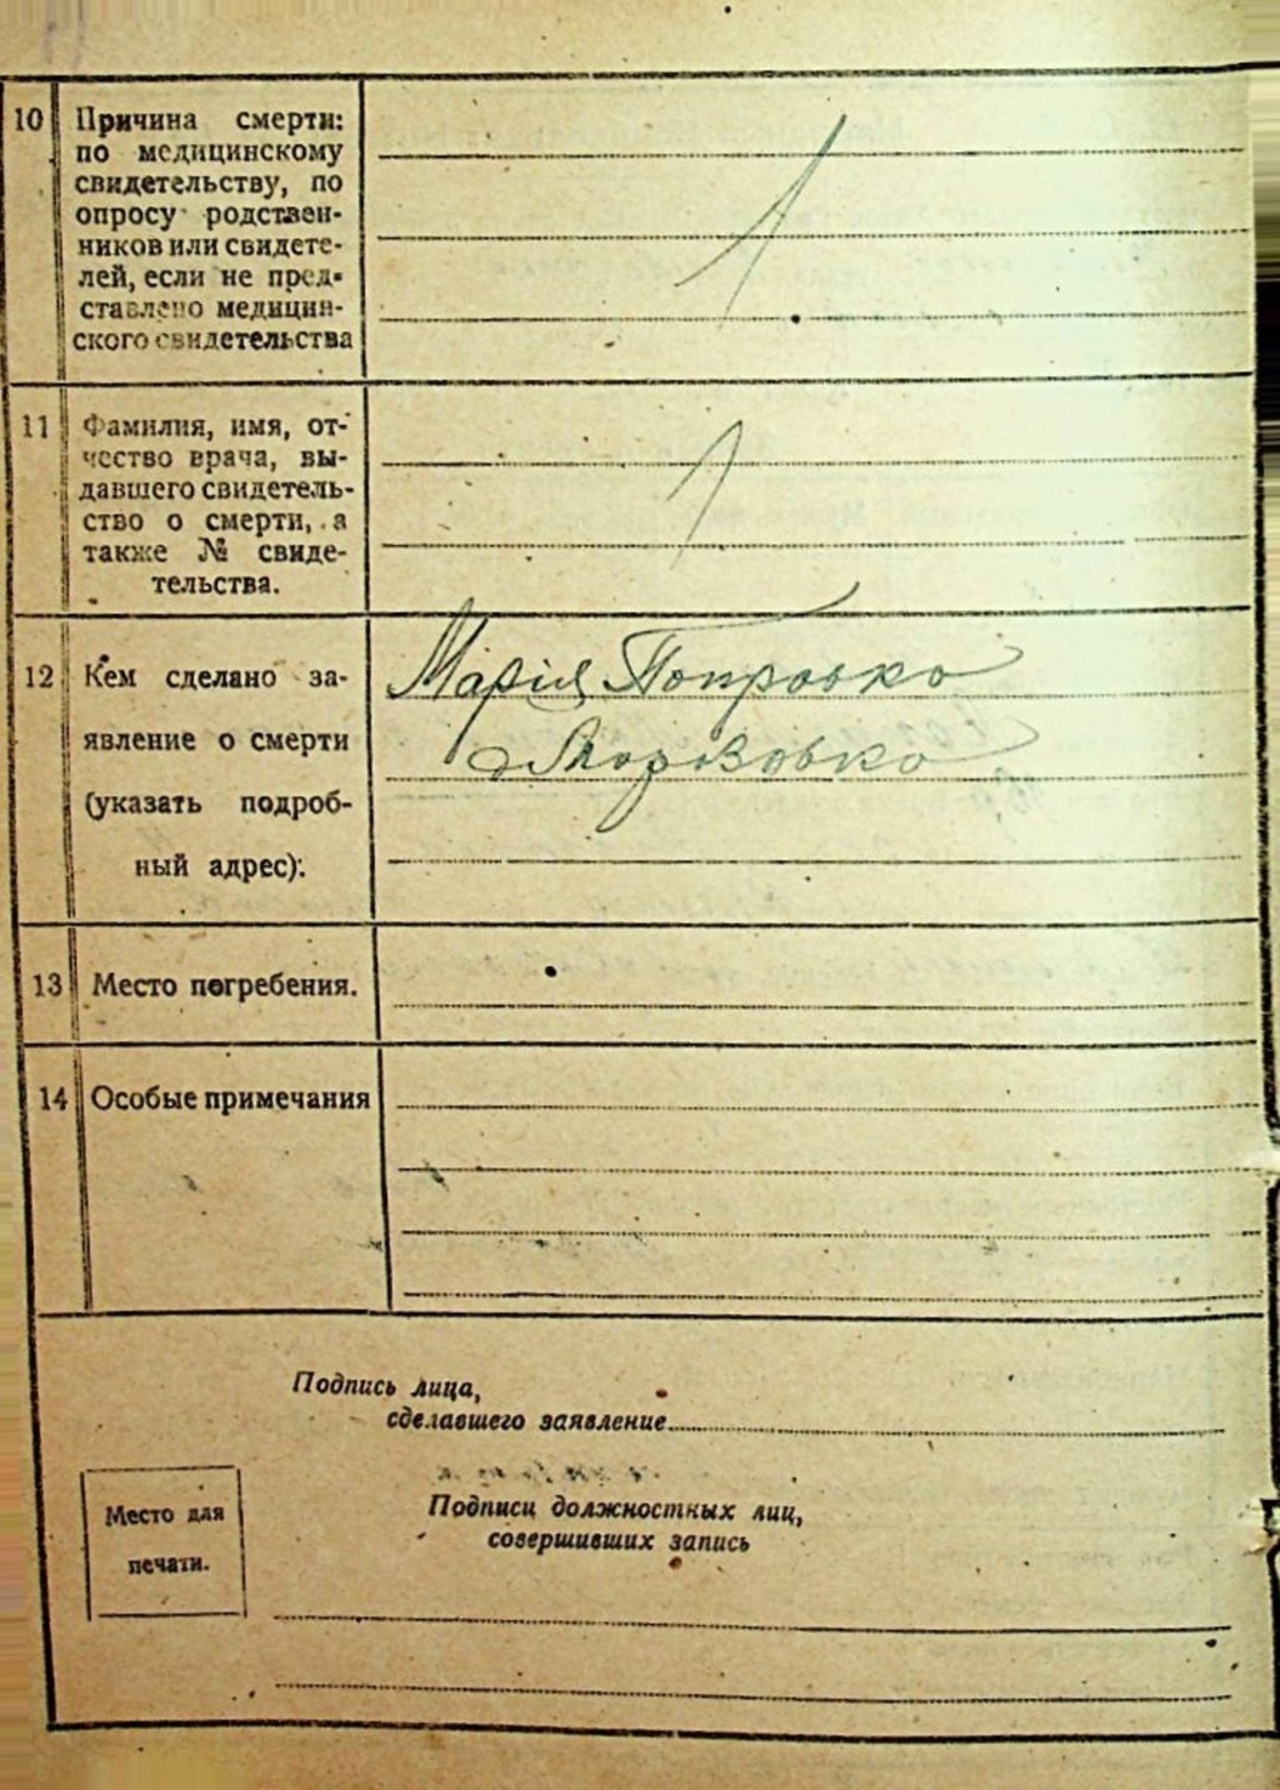 10 Причина смерти:
по медицинскому
свидетельству, по
опросу родствен-
ников или свидете-
лей, если не пред-
ставлено медицин-
ского свидетельства
11 Фамилия, имя, от-
чество врача, вы-
давшего свидетель-
ство о смерти, а
также № свиде-
тельства.
12 Кем сделано за-
явление о смерти
(указать подроб-
ный адрес):
Марія
13 Место погребения.
14 Особые примечания
Подпись лица,
сделавшего заявление
Место для
печати.
Подписи должностных лиц,
совершивших запись